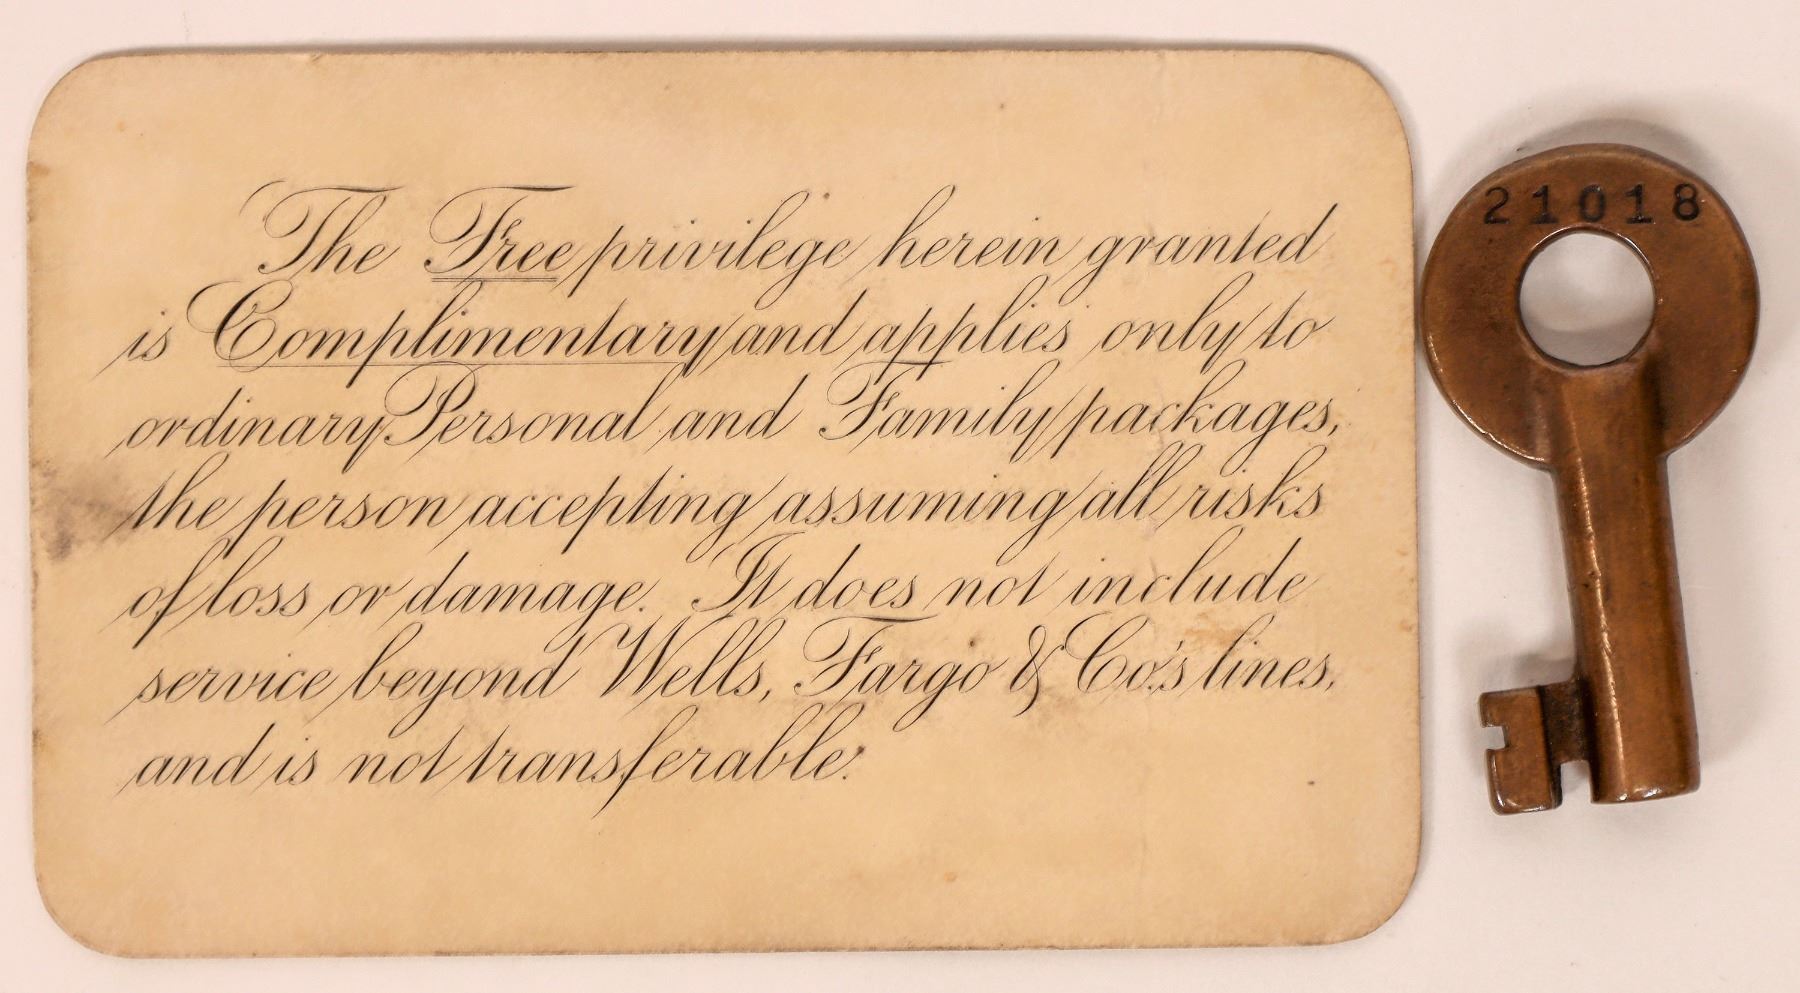 The Free privilege herein granted
is Complimentary and applies only to
ordinary Personal and Family packages,
the person accepting assuming all risks
of loss or damage. It does not include
service beyond Wells, Fargo & Co's lines,
and is not transferable.
21018